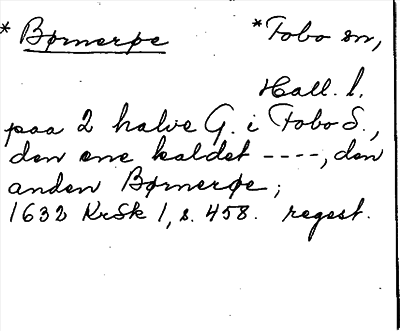 * Børnerøe    * Tobo sn,
Hall. l.
paa 2 halve G. i Tobo S.,
den ene kaldet ----, den
anden Børnerøe;
1632 KrSk 1, s. 458. regest.